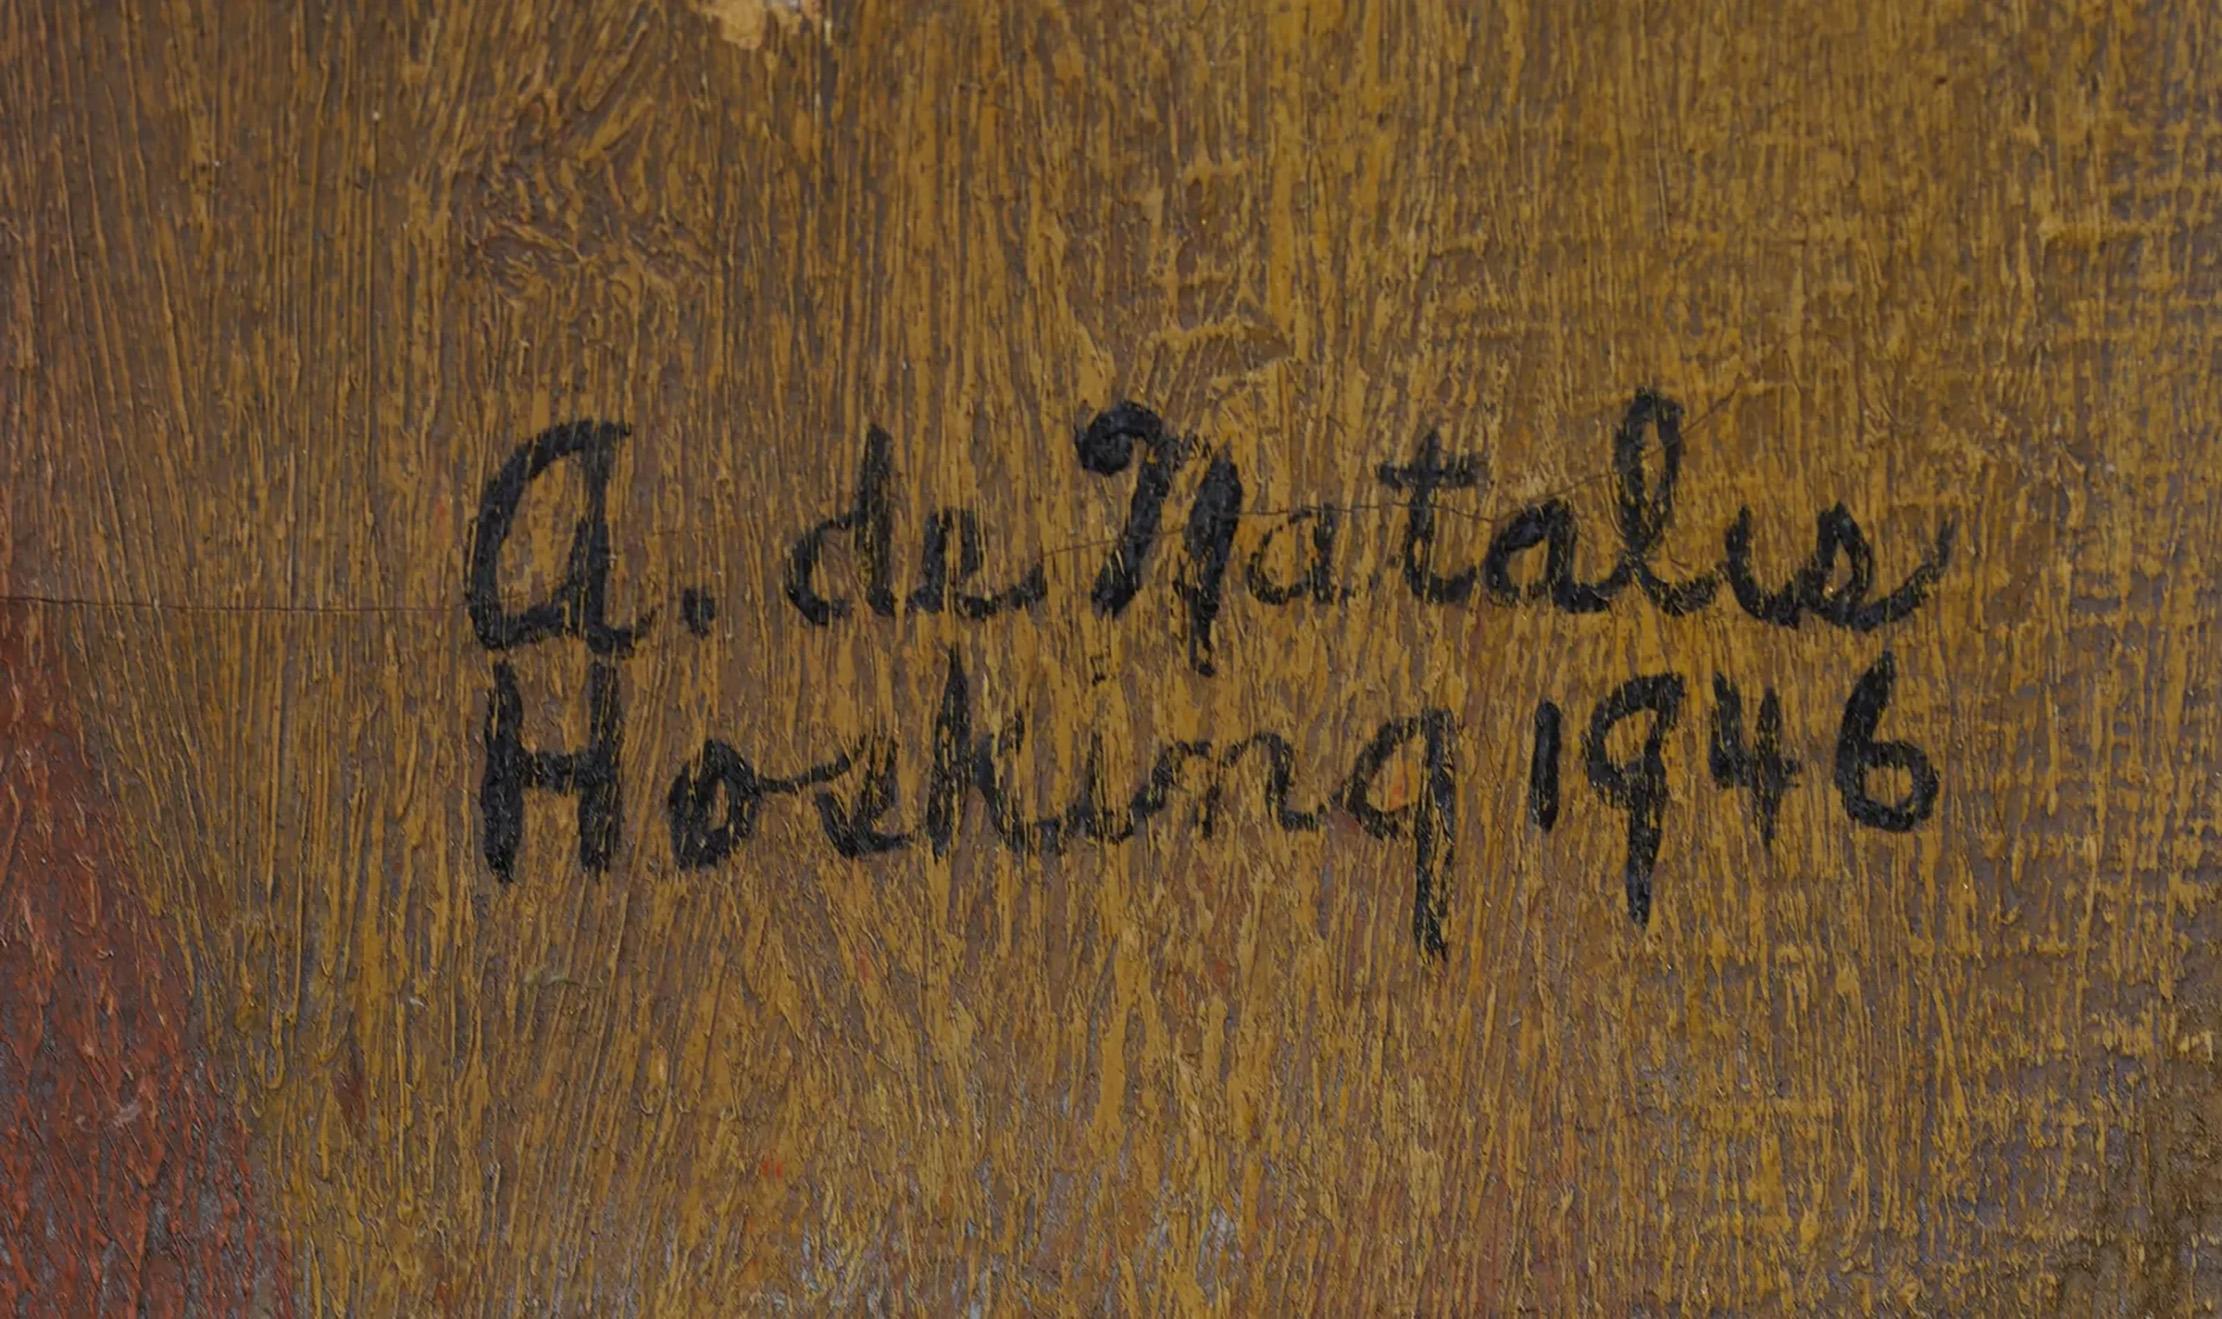 A. de Natalis
Hoeking 1946